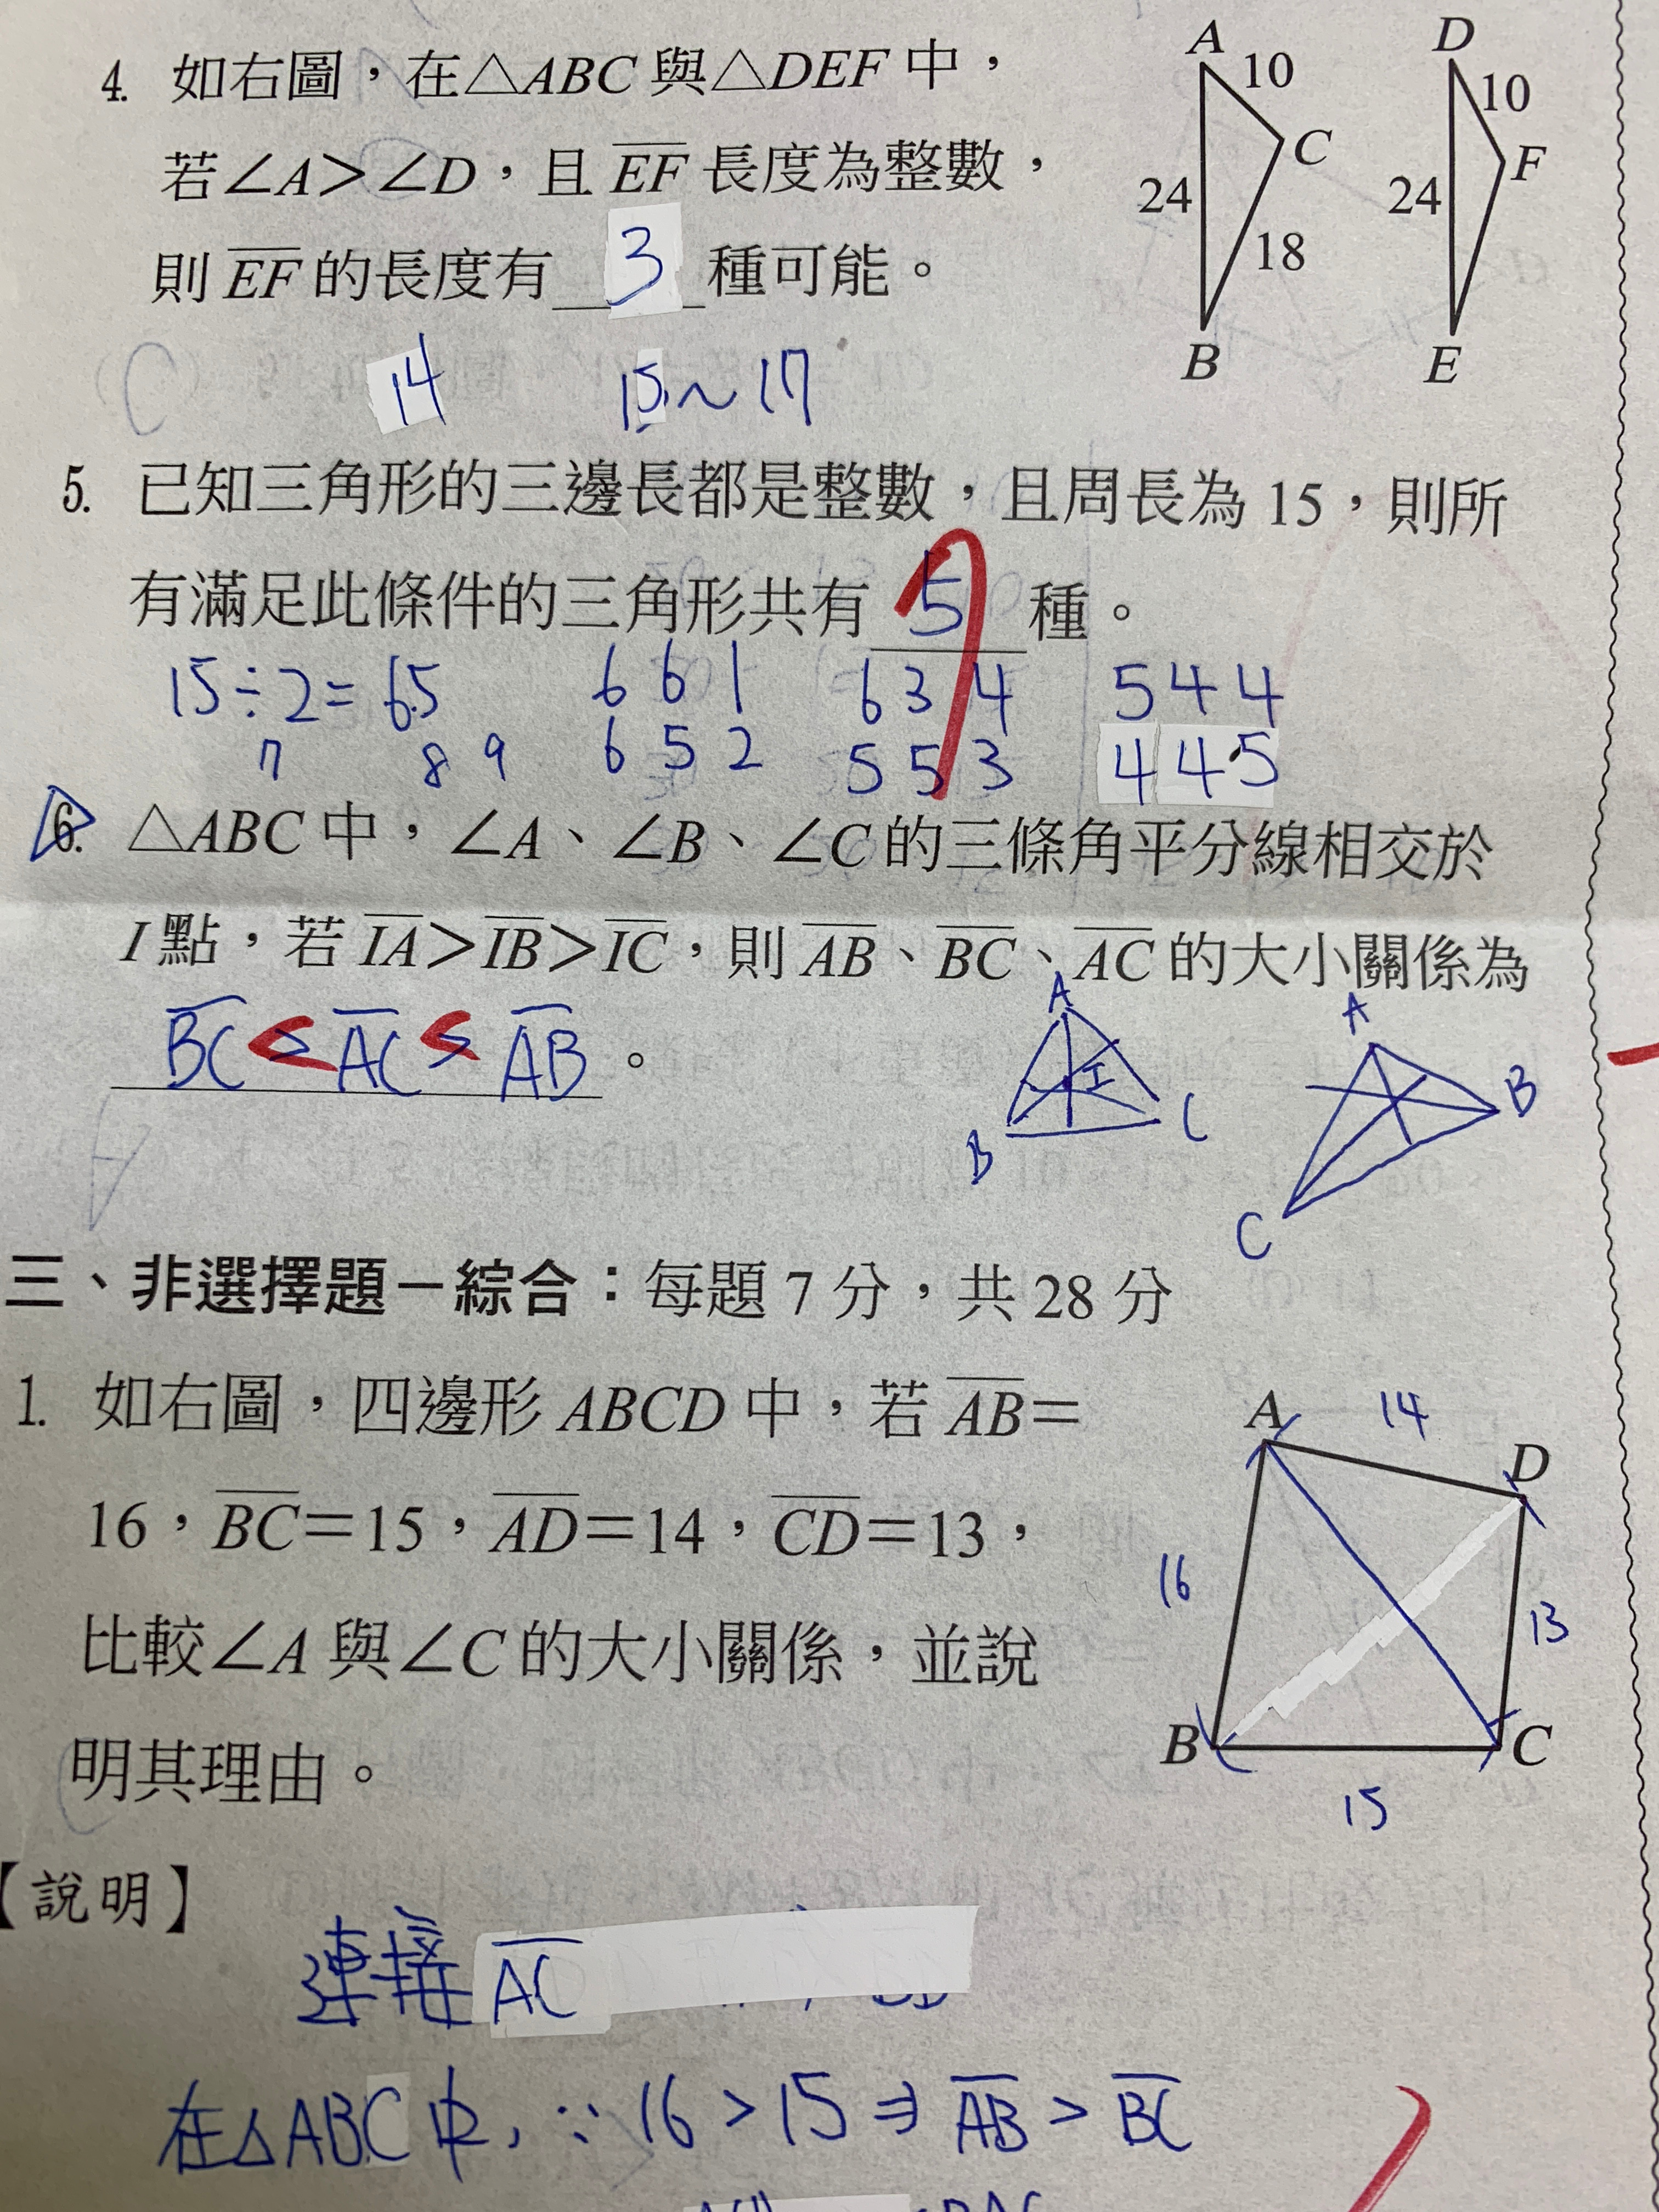 4. 如右圖，在△ABC與△DEF中，
若∠A＞∠D，且EF長度為整數，
則EF的長度有 3 種可能。
A 10 C 24 18 B
D 10 F 24 E
14 15~17
5. 已知三角形的三邊長都是整數，且周長為15，則所
有滿足此條件的三角形共有 5 種。
15÷2=6.5 6 6 1 6 3 4 5 4 4
7 8 9 6 5 2 5 5 3 4 4 5
6. △ABC中，∠A、∠B、∠C的三條角平分線相交於
I點，若IA＞IB＞IC，則AB、BC、AC的大小關係為
BC < AC < AB。
A I B C
A B C
三、非選擇題－綜合：每題7分，共28分
1. 如右圖，四邊形ABCD中，若AB＝
16，BC＝15，AD＝14，CD＝13，
比較∠A與∠C的大小關係，並說
明其理由。
A 14 D
16 13
B C
15
【說明】
連接AC
在△ABC中，∵16>15⇒AB>BC